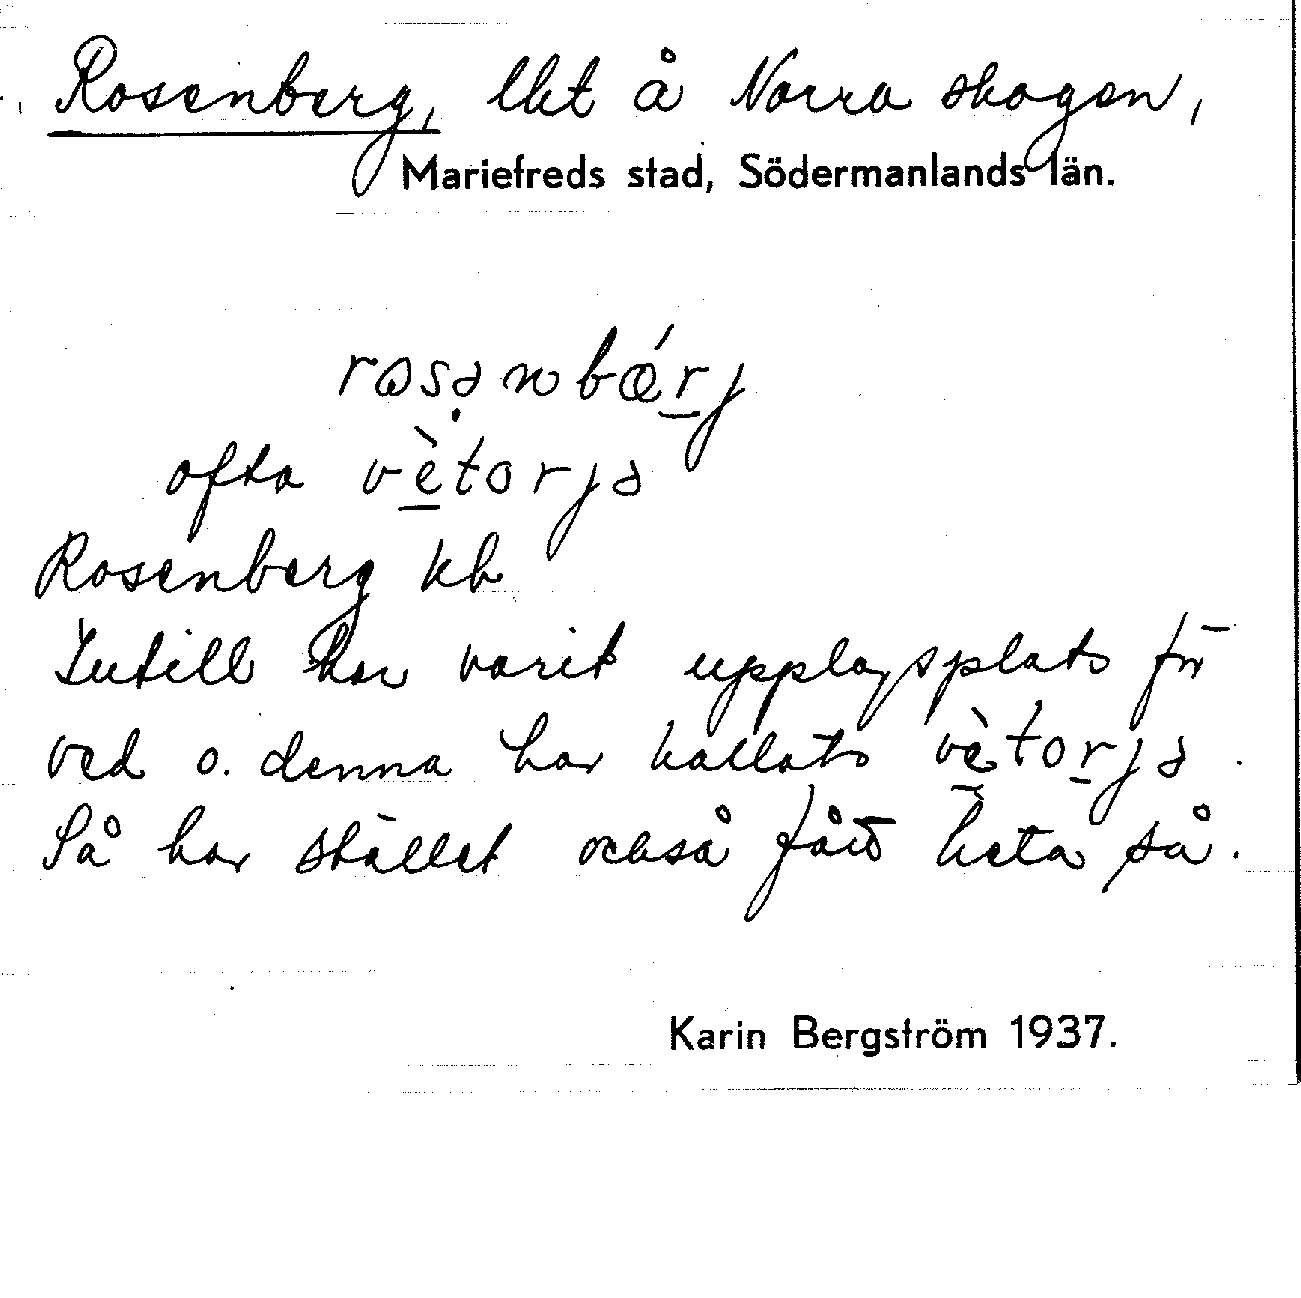 Rosenberg, lht å Norra skogen,
Mariefreds stad, Södermanlands län.
rosənbǽrj
ofta vètorjə
Rosenberg kb
Intill har varit upplagsplats för
ved o. denna har kallats vètorjə.
Så har stället också fått heta så.
Karin Bergström 1937.